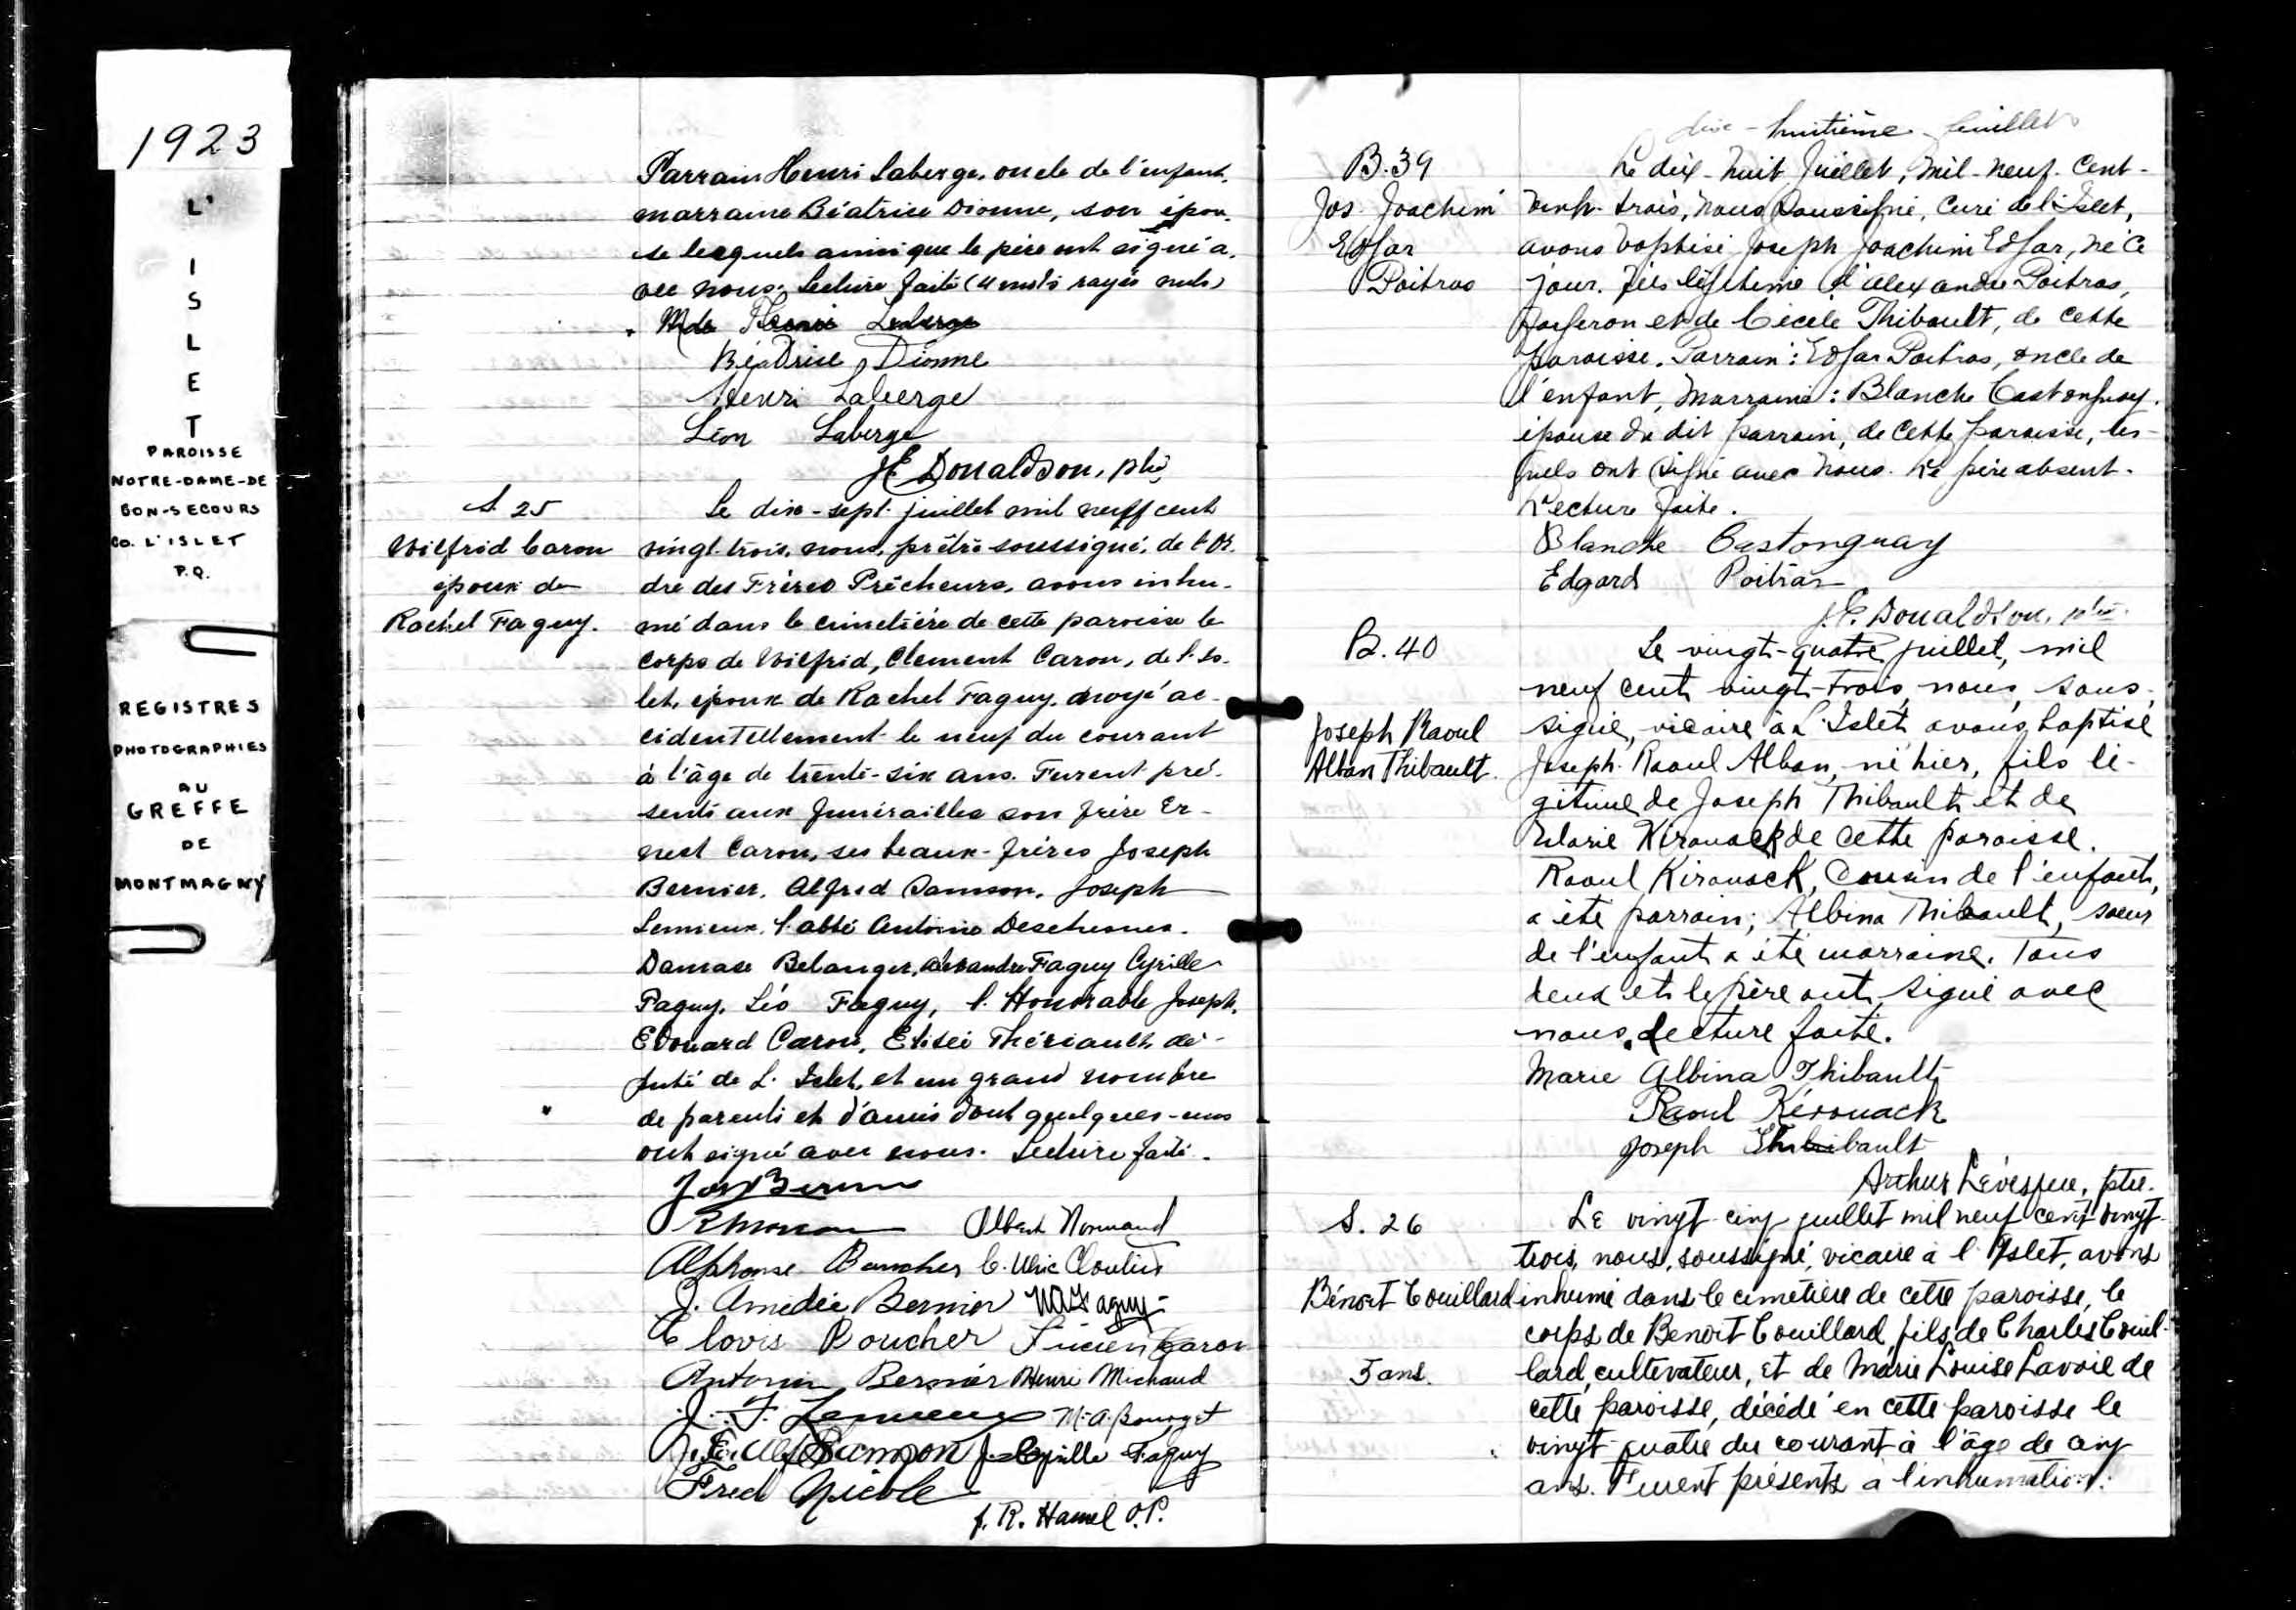 1923
L'
I
S
L
E
T
PAROISSE
NOTRE-DAME-DE
BON-SECOURS
CO. L'ISLET
P.Q.
REGISTRES
PHOTOGRAPHIES
AU
GREFFE
DE
MONTMAGNY
Parrain Henri Laberge, oncle de l'enfant,
marraine Béatrice Dionne, son épou-
se lesquels ainsi que le père ont signé a-
vec nous. Lecture faite (4 mots rayés nuls)
Mde Henri Laberge
Béatrice Dionne
Henri Laberge
Léon Laberge
JE Donaldson, ptre
S 25
Wilfrid Caron
époux de
Rachel Faguy.
Le dix-sept juillet mil neuff cent
vingt-trois, nous, prêtre soussigné, de l'Or-
dre des Frères Prêcheurs, avons inhu-
mé dans le cimetière de cette paroisse le
corps de Wilfrid, Clement Caron, de l'Is-
let, époux de Rachel Faguy, noyé ac-
cidentellement le neuf du courant
à l'âge de trente-six ans. Furent pré-
sents aux funérailles son frère Er-
nest Caron, ses beaux-frères Joseph
Bernier, Alfred Samson, Joseph
Lemieux, l'abbé Antoine Deschesnes.
Damase Belanger, Alexandre Faguy Cyrille
Faguy, Léo Faguy, l'Honorable Joseph,
Edouard Caron, Elisée Thériault, dé-
puté de L'Islet, et un grand nombre
de parents et d'amis dont quelques-uns
ont signé avec nous. Lecture faite.
Jos Bernier
Albert Normand
Alphonse Boucher C. Ulric Cloutier
J. Amédée Bernier Faguy
Clovis Boucher Lucien Caron
Antonin Bernier Henri Michaud
J. F. Lemieux M. A. Bourget
Alf Samson J. Cyrille Faguy
Fred Nicole
f. R. Hamel O.P.
dix-huitième feuillet
B. 39
Jos. Joachim
Edgar
Poitras
Le dix-huit Juillet, mil-neuf-cent-
vingt-trois, nous soussigné, curé de l'Islet,
avons baptisé Joseph Joachim Edgar, né ce
jour, fils légitime d'Alexandre Poitras,
forgeron et de Cécile Thibault, de cette
paroisse. Parrain: Edgar Poitras, oncle de
l'enfant, Marraine: Blanche Castonguay,
épouse du dit parrain, de cette paroisse, les-
quels ont signé avec nous. Le père absent.
Lecture faite.
Blanche Castonguay
Edgard Poitras
J.E. Donaldson, ptre.
B. 40
Joseph Raoul
Alban Thibault.
Le vingt-quatre juillet, mil
neuf cent vingt-trois, nous, sous-
signé, vicaire à L'Islet avons baptisé
Joseph Raoul Alban, né hier, fils lé-
gitime de Joseph Thibault et de
Marie Kirouack de cette paroisse.
Raoul Kirouack, Cousin de l'enfant,
a été parrain; Albina Thibault, soeur
de l'enfant a été marraine. Tous
deux et le père ont signé avec
nous. Lecture faite.
Marie Albina Thibault
Raoul Kérouack
Joseph Thibault
Arthur Lévesque, ptre.
S. 26
Bénoit Couillard
5 ans.
Le vingt-cinq juillet mil neuf cent vingt-
trois, nous, soussigné, vicaire à l'Islet, avons
inhumé dans le cimetière de cette paroisse, le
corps de Benoit Couillard, fils de Charles Couil-
lard, cultivateur, et de Marie Louise Lavoie de
cette paroisse, décédé en cette paroisse le
vingt-quatre du courant à l'âge de cinq
ans. Furent présents a l'inhumation: